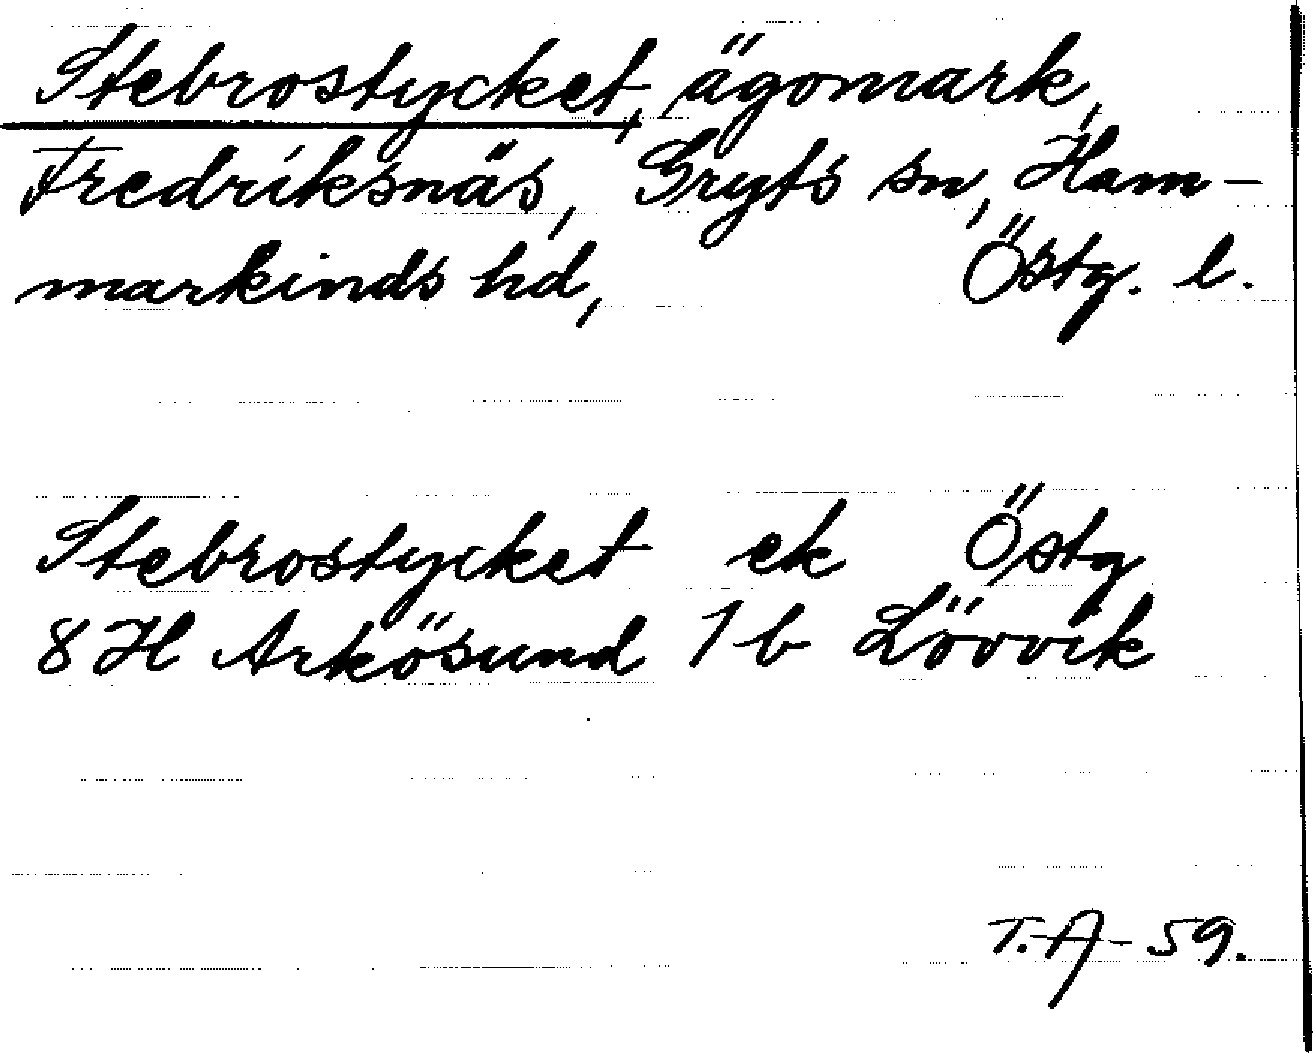 Stebrostycket, ägomark,
Fredriksnäs, Gryts sn, Ham-
markinds hd, Östg. l.
Stebrostycket ek Östg
8 H Arkösund 1 b Lövvik
T.A-59.